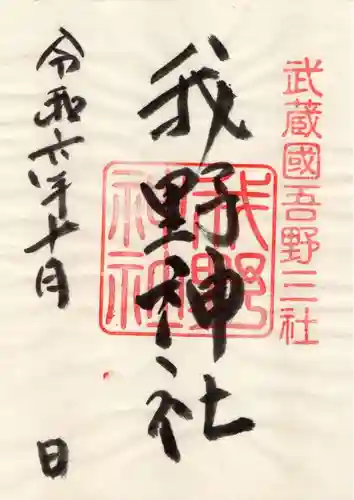 武蔵國吾野三社
我野神社
我野神社
令和六年十月
日